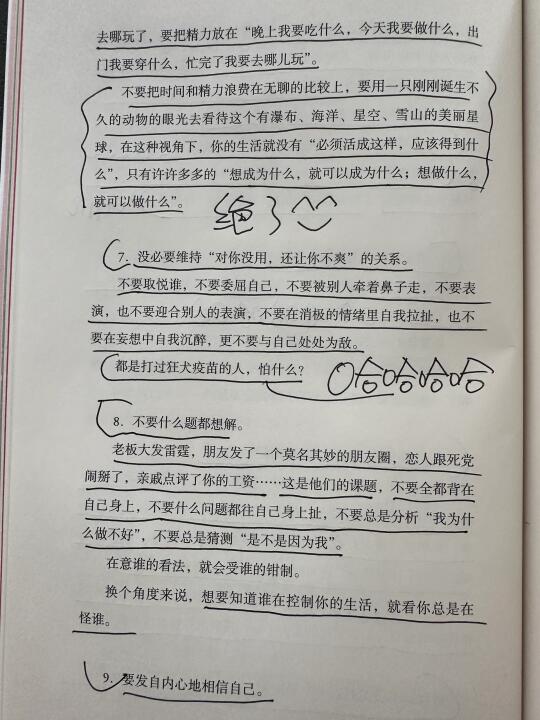 去哪玩了，要把精力放在“晚上我要吃什么，今天我要做什么，出
门我要穿什么，忙完了我要去哪儿玩”。
不要把时间和精力浪费在无聊的比较上，要用一只刚刚诞生不
久的动物的眼光去看待这个有瀑布、海洋、星空、雪山的美丽星
球，在这种视角下，你的生活就没有“必须活成这样，应该得到什
么”，只有许许多多的“想成为什么，就可以成为什么；想做什么，
就可以做什么”。
绝了
7. 没必要维持“对你没用，还让你不爽”的关系。
不要取悦谁，不要委屈自己，不要被别人牵着鼻子走，不要表
演，也不要迎合别人的表演，不要在消极的情绪里自我拉扯，也不
要在妄想中自我沉醉，更不要与自己处处为敌。
都是打过狂犬疫苗的人，怕什么？
8. 不要什么题都想解。
老板大发雷霆，朋友发了一个莫名其妙的朋友圈，恋人跟死党
闹掰了，亲戚点评了你的工资……这是他们的课题，不要全都背在
自己身上，不要什么问题都往自己身上扯，不要总是分析“我为什
么做不好”，不要总是猜测“是不是因为我”。
在意谁的看法，就会受谁的钳制。
换个角度来说，想要知道谁在控制你的生活，就看你总是在
怪谁。
9. 要发自内心地相信自己。